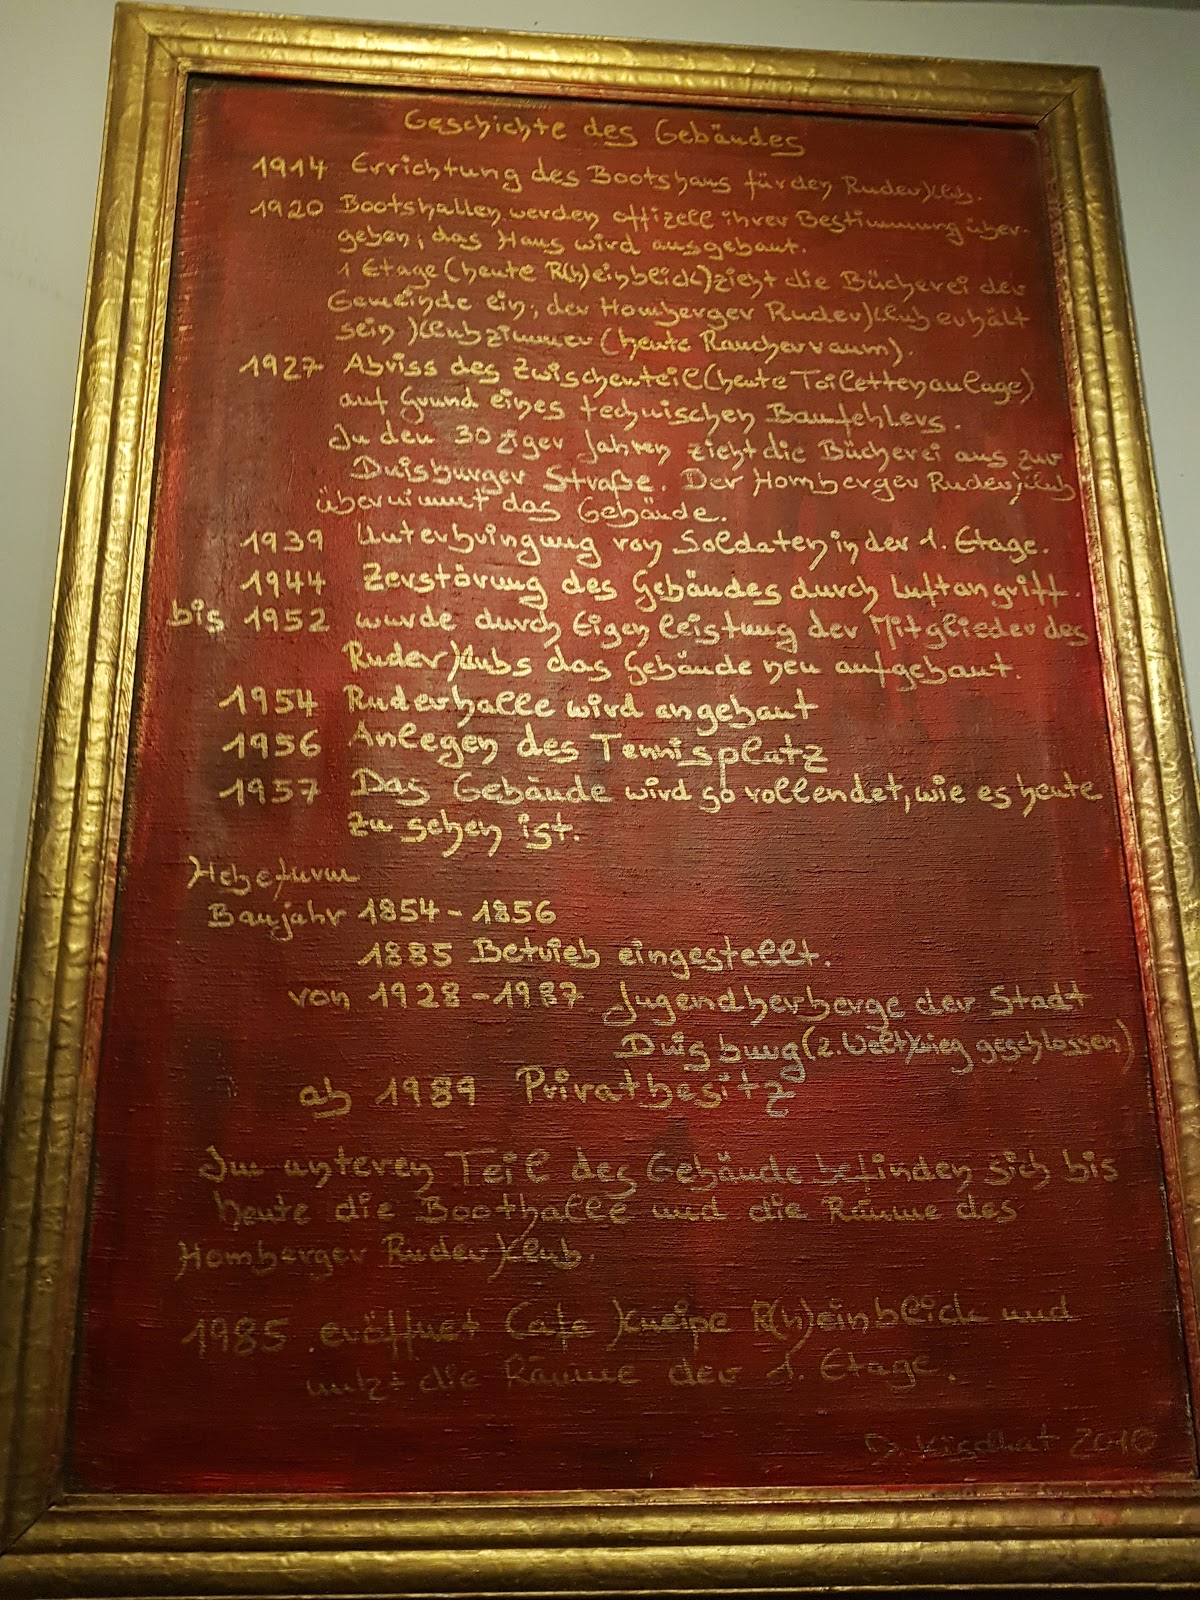 Geschichte des Gebäudes
1914 Errichtung des Bootshaus für den Ruderklub.
1920 Bootshallen werden offizell ihrer Bestimmung über-
geben; das Haus wird ausgebaut.
1 Etage (heute R(h)einblick) zieht die Bücherei der
Gemeinde ein; der Homberger Ruderklub erhält
sein Klubzimmer (heute Raucherraum).
1927 Abriss des Zwischenteil (heute Toilettenanlage)
auf Grund eines technischen Baufehlers.
In den 30ziger Jahren zieht die Bücherei aus zur
Duisburger Straße. Der Homberger Ruderklub
übernimmt das Gebäude.
1939 Unterbringung von Soldaten in der 1. Etage.
1944 Zerstörung des Gebäudes durch Luftangriff.
bis 1952 wurde durch Eigenleistung der Mitglieder des
Ruderklubs das Gebäude neu aufgebaut.
1954 Ruderhalle wird angebaut
1956 Anlegen des Tennisplatz
1957 Das Gebäude wird so vollendet, wie es heute
zu sehen ist.
Hebeturm
Baujahr 1854-1856
1885 Betrieb eingestellt.
von 1928-1987 Jugendherberge der Stadt
Duisburg (2. Weltkrieg geschlossen)
ab 1989 Privatbesitz
Im unteren Teil des Gebäude befinden sich bis
heute die Boothalle und die Räume des
Homberger Ruderklub.
1985 eröffnet Cafe Kneipe R(h)einblick und
nutzt die Räume der 1. Etage.
2010